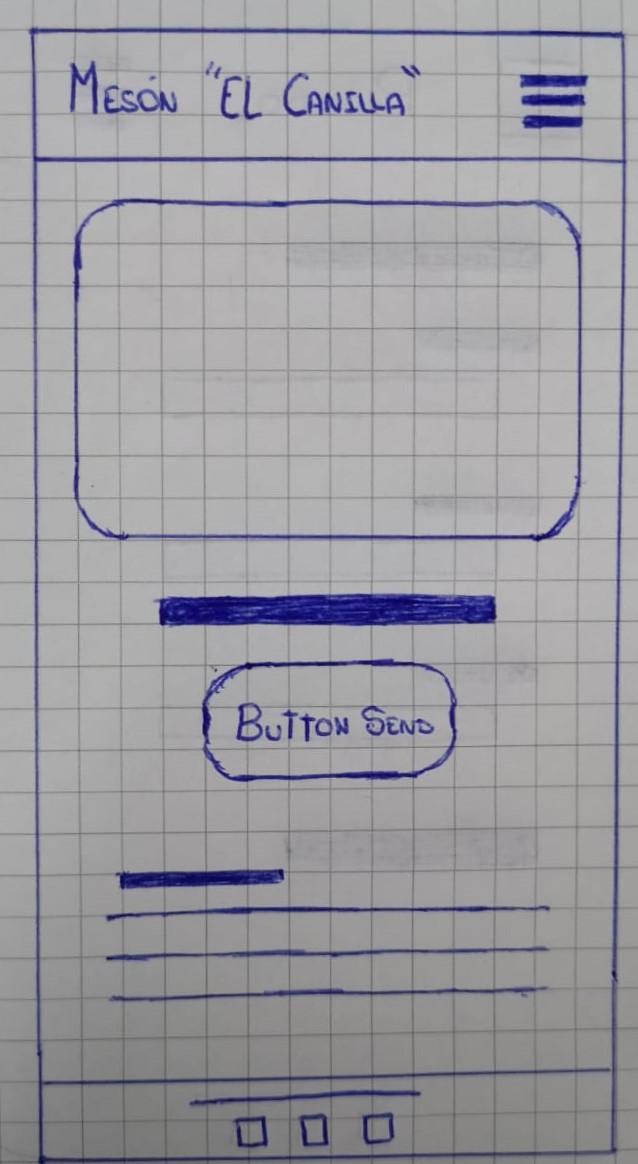 MESÓN "EL CANILLA"
BUTTON SEND